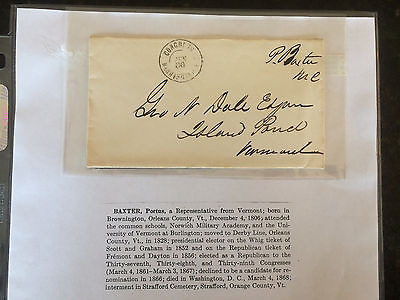 CONGRESS
JAN
30
P. Baxter
M.C
Geo N Dale Esqr
Island Pond
Vermont
BAXTER, Portus, a Representative from Vermont; born in
Brownington, Orleans County, Vt., December 4, 1806; attended
the common schools, Norwich Military Academy, and the Uni-
versity of Vermont at Burlington; moved to Derby Line, Orleans
County, Vt., in 1828; presidential elector on the Whig ticket of
Scott and Graham in 1852 and on the Republican ticket of
Frémont and Dayton in 1856; elected as a Republican to the
Thirty-seventh, Thirty-eighth, and Thirty-ninth Congresses
(March 4, 1861–March 3, 1867); declined to be a candidate for re-
nomination in 1866; died in Washington, D. C., March 4, 1868;
interment in Strafford Cemetery, Strafford, Orange County, Vt.